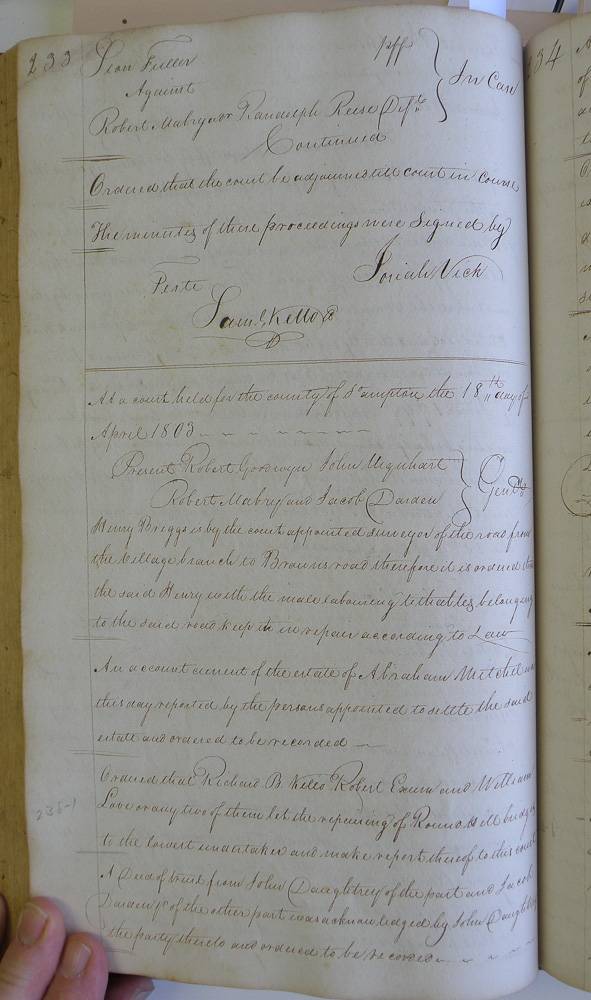 233
Fuller plff
Against } In Case
Robert Mabry & or Randolph Reese Defts
Continued
Ordered that the court be adjourned till court in course
The minutes of these proceedings were Signed by
Josiah Vick
Teste
Saml Kello
At a court held for the county of So ampton the 18th day of
April 1803
Present Robert Goodwyn John Urquhart
Robert Mabry and Jacob Darden } Gent
Henry Briggs is by the court appointed surveyor of the road from
the Village branch to Browns road therefore it is ordered that
the said Henry with the male labouring tithables belonging
to the said road keep in repair according to Law
An account current of the estate of Abraham Mitchel was
this day reported by the persons appointed to settle the said
estate and ordered to be recorded
Ordered that Richard B. Kello Robert and William
Love or any two of them let the repairing of Round Hill bridge
to the lowest undertaker and make report thereof to this court
A Deed of trust from John Daughtrey of the part and Jacob
Darden &c of the other part was acknowledged by John Daughtrey
the party thereto and ordered to be recorded
235-1
234